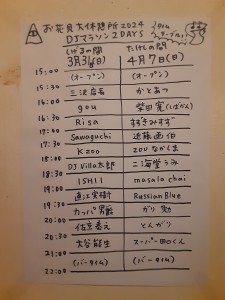 お花見大休憩所2024
DJマラソン2DAYS
しげるの間 たけしの間
3月31(日) 4月7日(日)
15:00 (オープン) (オープン)
15:30 三沢店長 かとあつ
16:00 gou 柴田寛(いぱかん)
16:30 Risa すずきみすず
17:00 Sawaguchi 近藤画伯
17:30 Kzoo ZOUなかじま
18:00 DJ Villa太郎 二海堂うみ
18:30 ISHII masala chai
19:00 直江実樹 Russian Blue
19:30 カッパ男爵 ガリ
20:00 佐立泰之 とんがり
20:30 大谷能生 スーパー田口くん
21:30 (バータイム) (バータイム)
22:00